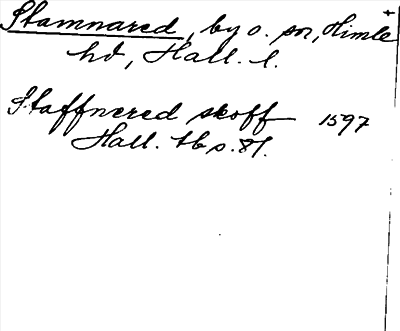 Stamnared, by o. sn, Himle
hd, Hall. l.
Staffnered skoff 1597
Hall. tb s. 81.